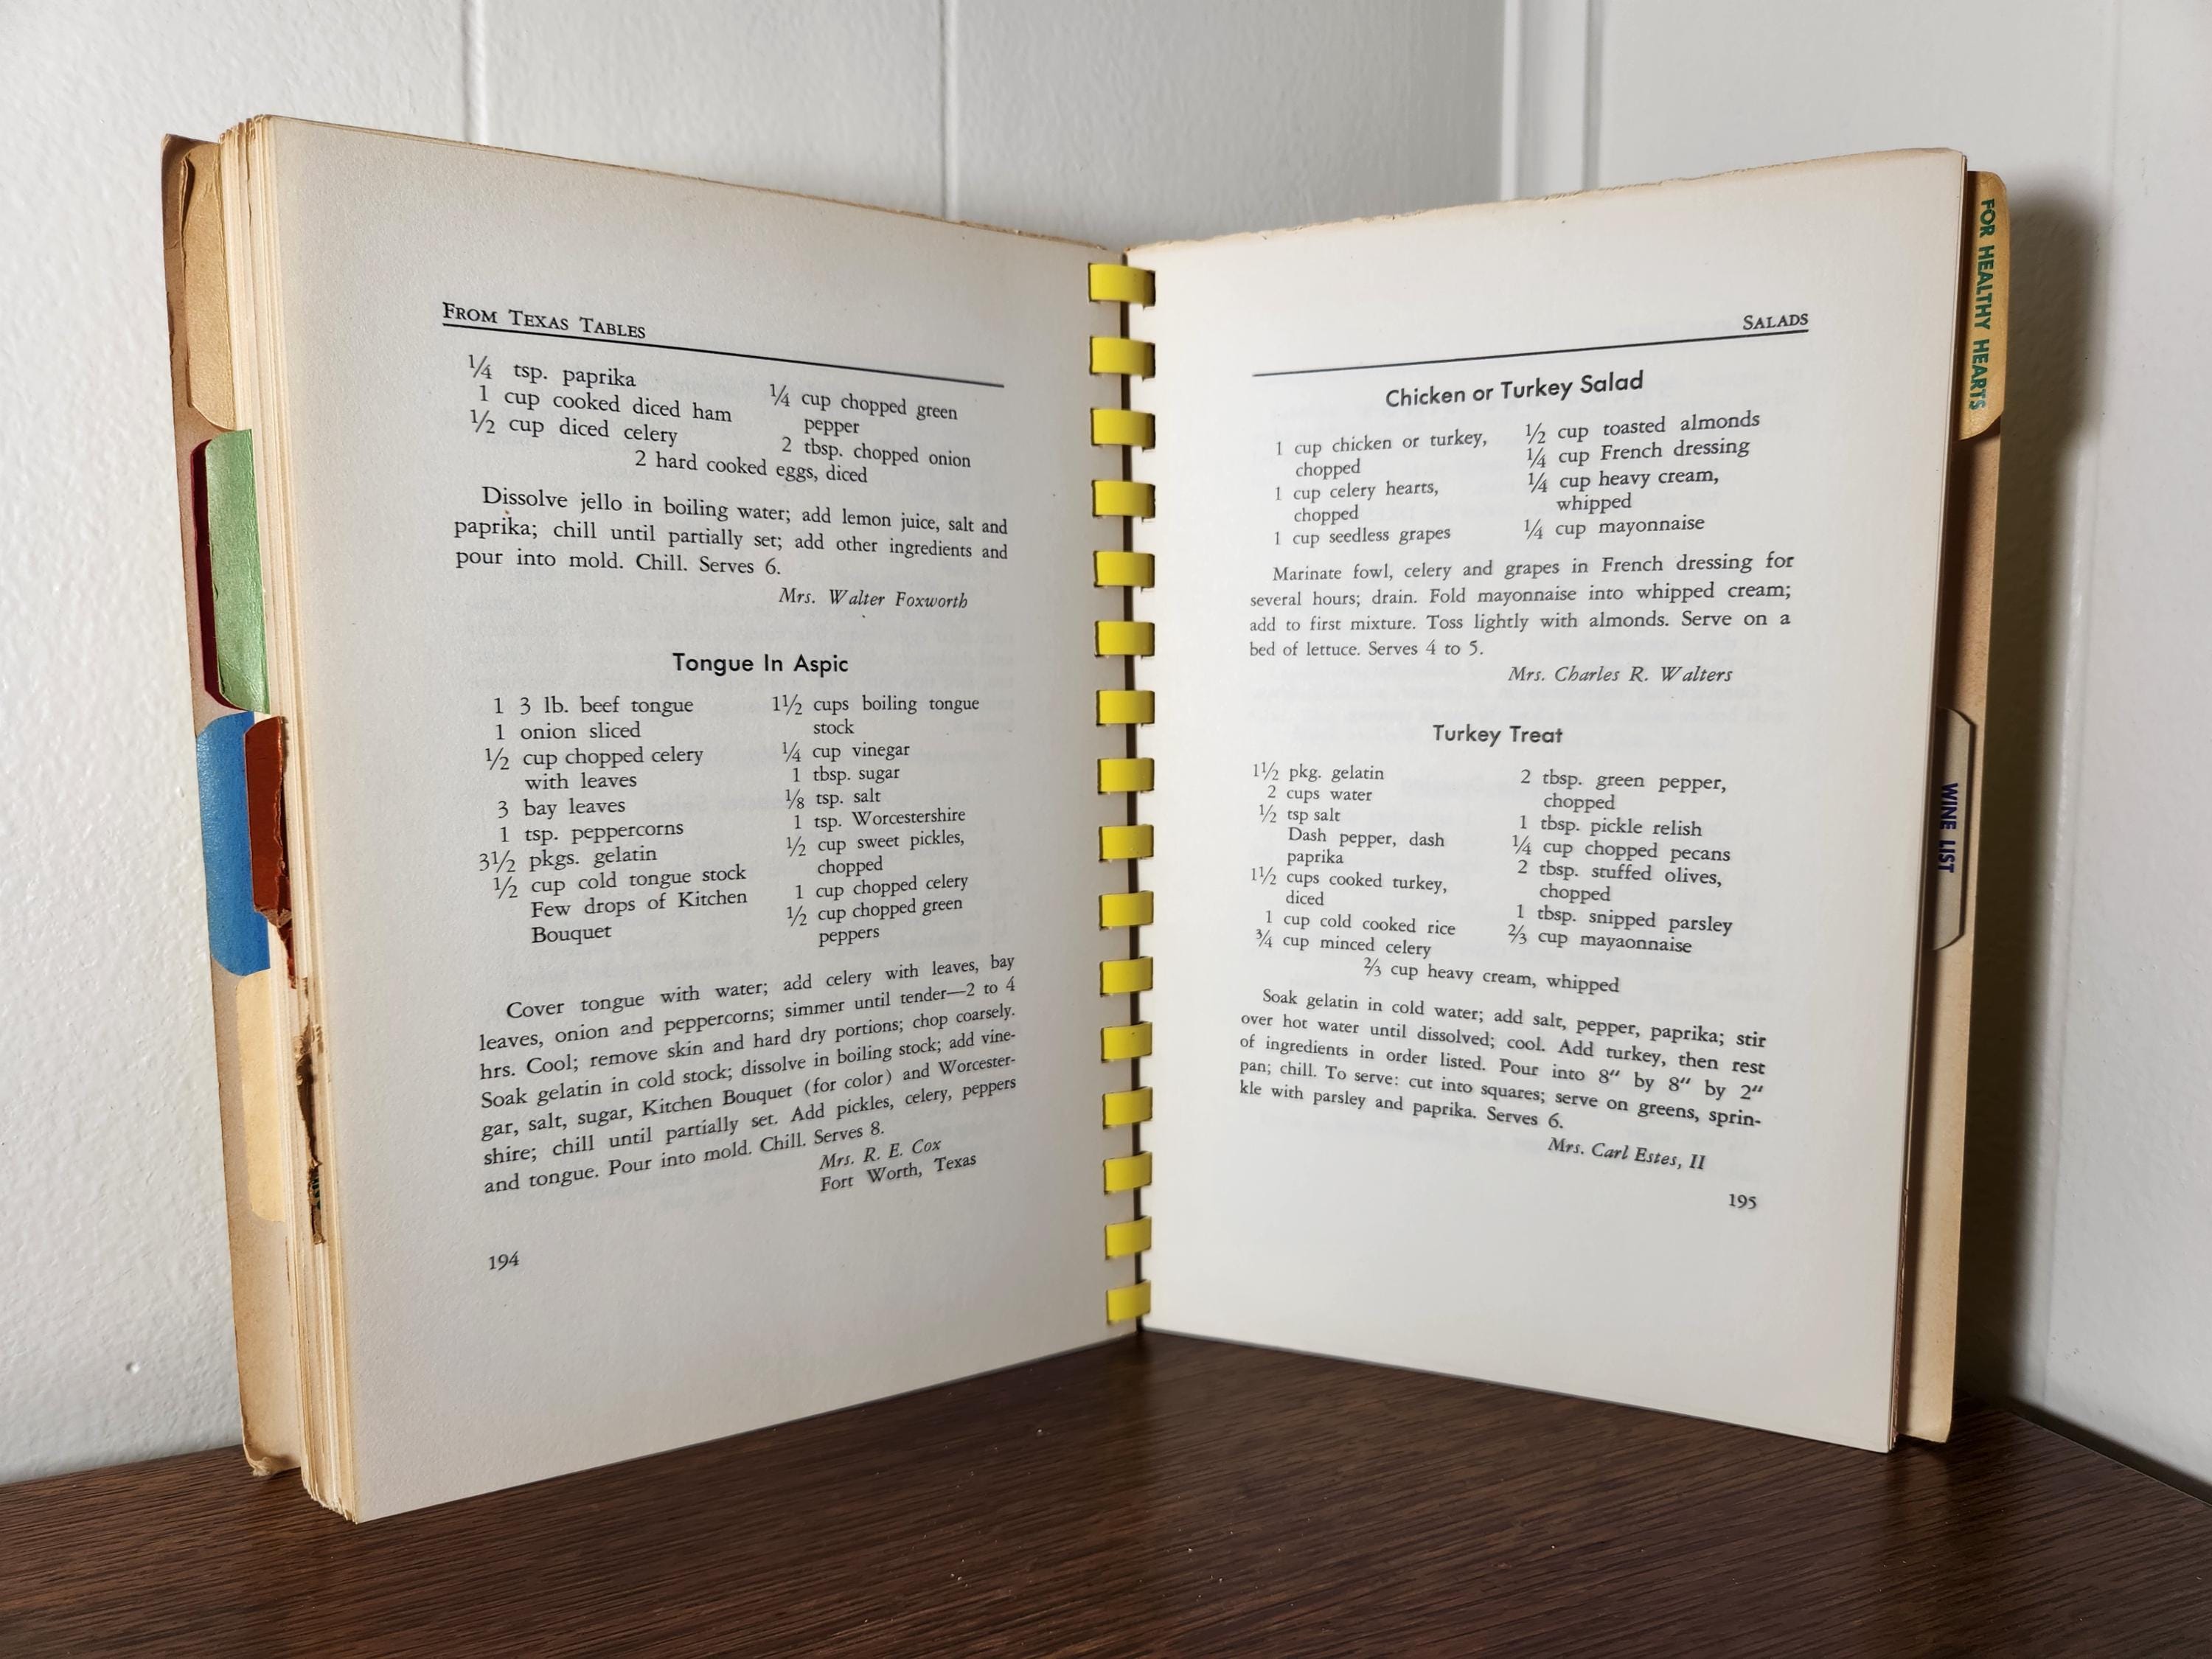 FROM TEXAS TABLES
¼ tsp. paprika
1 cup cooked diced ham
½ cup diced celery
¼ cup chopped green
pepper
2 tbsp. chopped onion
2 hard cooked eggs, diced
Dissolve jello in boiling water; add lemon juice, salt and
paprika; chill until partially set; add other ingredients and
pour into mold. Chill. Serves 6.
Mrs. Walter Foxworth
Tongue In Aspic
1 3 lb. beef tongue
1 onion sliced
½ cup chopped celery
with leaves
3 bay leaves
1 tsp. peppercorns
3½ pkgs. gelatin
½ cup cold tongue stock
Few drops of Kitchen
Bouquet
1½ cups boiling tongue
stock
¼ cup vinegar
1 tbsp. sugar
⅛ tsp. salt
1 tsp. Worcestershire
½ cup sweet pickles,
chopped
1 cup chopped celery
½ cup chopped green
peppers
Cover tongue with water; add celery with leaves, bay
leaves, onion and peppercorns; simmer until tender—2 to 4
hrs. Cool; remove skin and hard dry portions; chop coarsely.
Soak gelatin in cold stock; dissolve in boiling stock; add vine-
gar, salt, sugar, Kitchen Bouquet (for color) and Worcester-
shire; chill until partially set. Add pickles, celery, peppers
and tongue. Pour into mold. Chill. Serves 8.
Mrs. R. E. Cox
Fort Worth, Texas
194
SALADS
Chicken or Turkey Salad
1 cup chicken or turkey,
chopped
1 cup celery hearts,
chopped
1 cup seedless grapes
½ cup toasted almonds
¼ cup French dressing
¼ cup heavy cream,
whipped
¼ cup mayonnaise
Marinate fowl, celery and grapes in French dressing for
several hours; drain. Fold mayonnaise into whipped cream;
add to first mixture. Toss lightly with almonds. Serve on a
bed of lettuce. Serves 4 to 5.
Mrs. Charles R. Walters
Turkey Treat
1½ pkg. gelatin
2 cups water
½ tsp salt
Dash pepper, dash
paprika
1½ cups cooked turkey,
diced
1 cup cold cooked rice
¾ cup minced celery
2 tbsp. green pepper,
chopped
1 tbsp. pickle relish
¼ cup chopped pecans
2 tbsp. stuffed olives,
chopped
1 tbsp. snipped parsley
⅔ cup mayaonnaise
⅔ cup heavy cream, whipped
Soak gelatin in cold water; add salt, pepper, paprika; stir
over hot water until dissolved; cool. Add turkey, then rest
of ingredients in order listed. Pour into 8" by 8" by 2"
pan; chill. To serve: cut into squares; serve on greens, sprin-
kle with parsley and paprika. Serves 6.
Mrs. Carl Estes, II
195
FOR HEALTHY HEARTS
WINE LIST